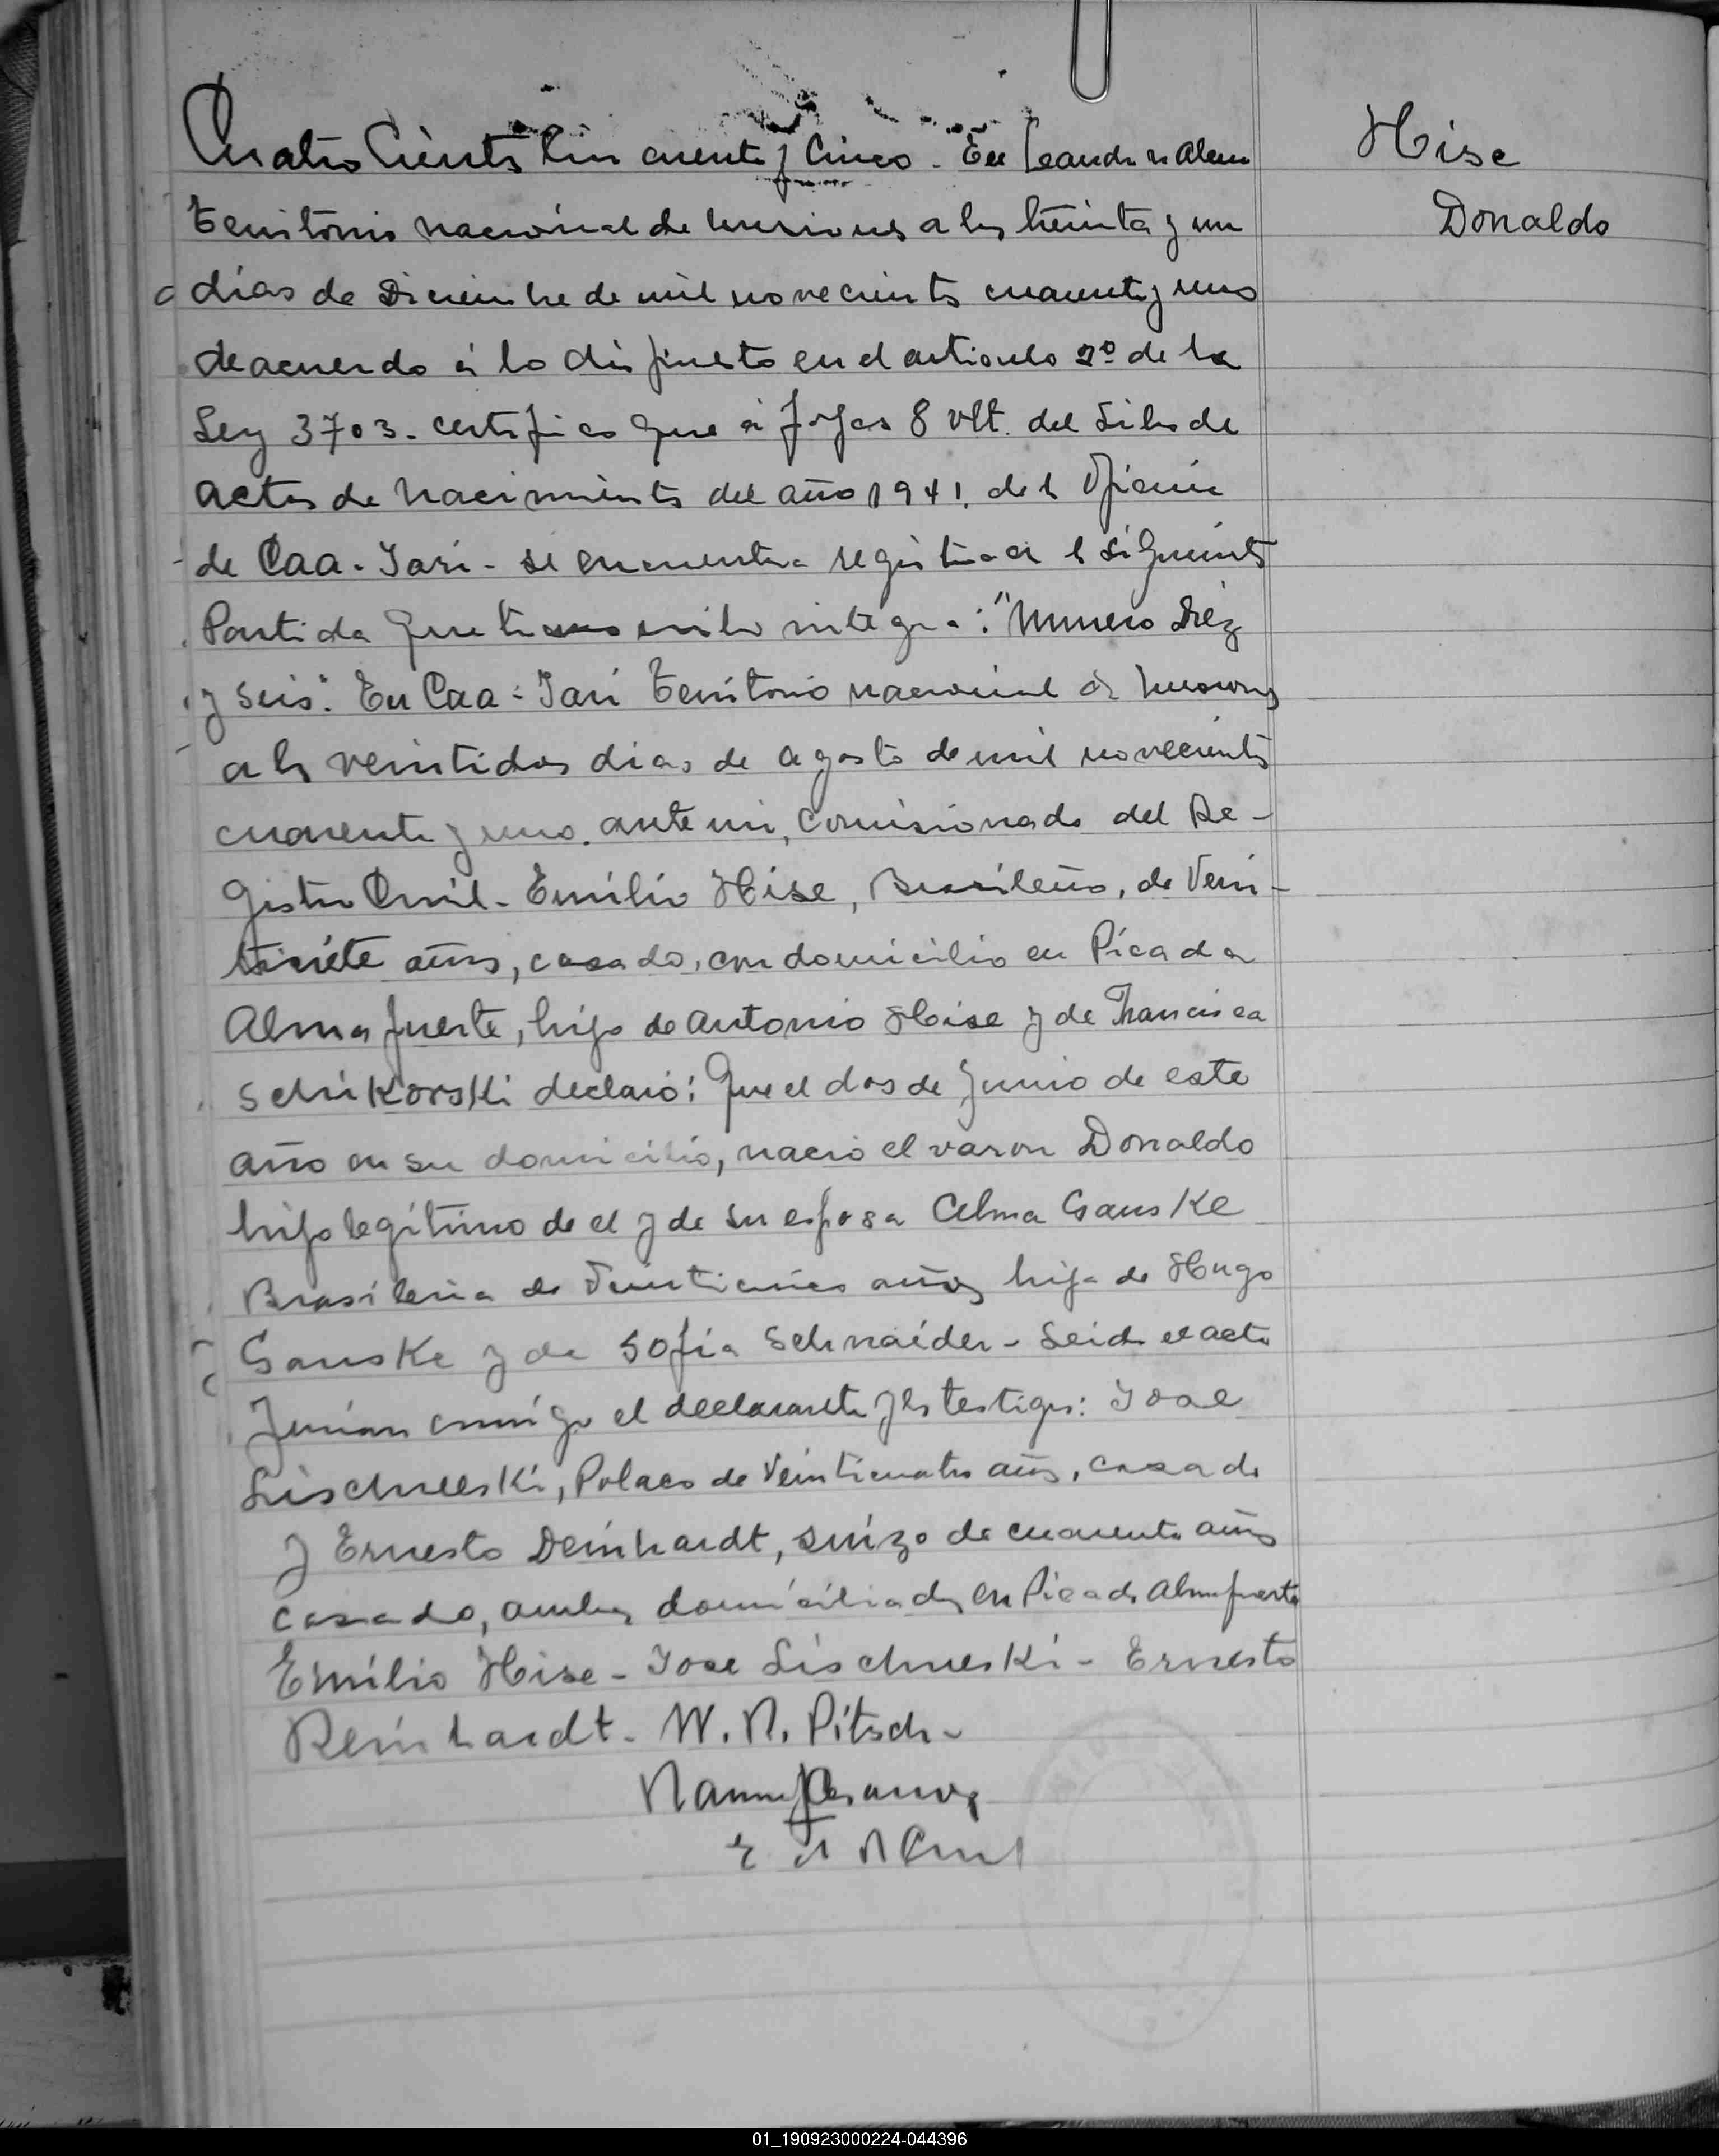 Cuatro Cientos Cincuenta y Cinco. En Leandro N Alem
Territorio nacional de Misiones a los treinta y un
dias de Diciembre de mil novecientos cuarenta y uno
de acuerdo á lo dispuesto en el articulo 2º de la
Ley 3703. certifico que á fojas 8 vlt. del Libro de
actas de nacimientos del año 1941. de la Oficina
de Caa-Yari- se encuentra registrada la siguiente
Partida que transcribo integra: "Numero Diéz
y seis". En Caa-Yari Territorio nacional de Misiones
a los veintidos dias de agosto de mil novecientos
cuarenta y uno. ante mi, Comisionado del Re-
gistro Civil- Emilio Hise, Brasileño, de Vein-
tisiete años, casado, con domicilio en Picada
Almafuerte, hijo de Antonio Hise y de Francisca
Schikorski declaró: Que el dos de Junio de este
año en su domicilio, nació el varon Donaldo
hijo legítimo de el y de su esposa Celma Ganske
Brasileña de Veinticinco años hija de Hugo
Ganske y de Sofia Schnaider- Leida el acta
Firman conmigo el declarante y los testigos: Jose
Lischneski, Polaco de Veinticuatro años, casado
y Ernesto Deinhardt, suizo de cuarenta años
casado, ambos domiciliados en Picada Almafuerte
Emilio Hise- Jose Lischneski- Ernesto
Reinhardt- W. R. Pitsch-
Hise
Donaldo
01_190923000224-044396